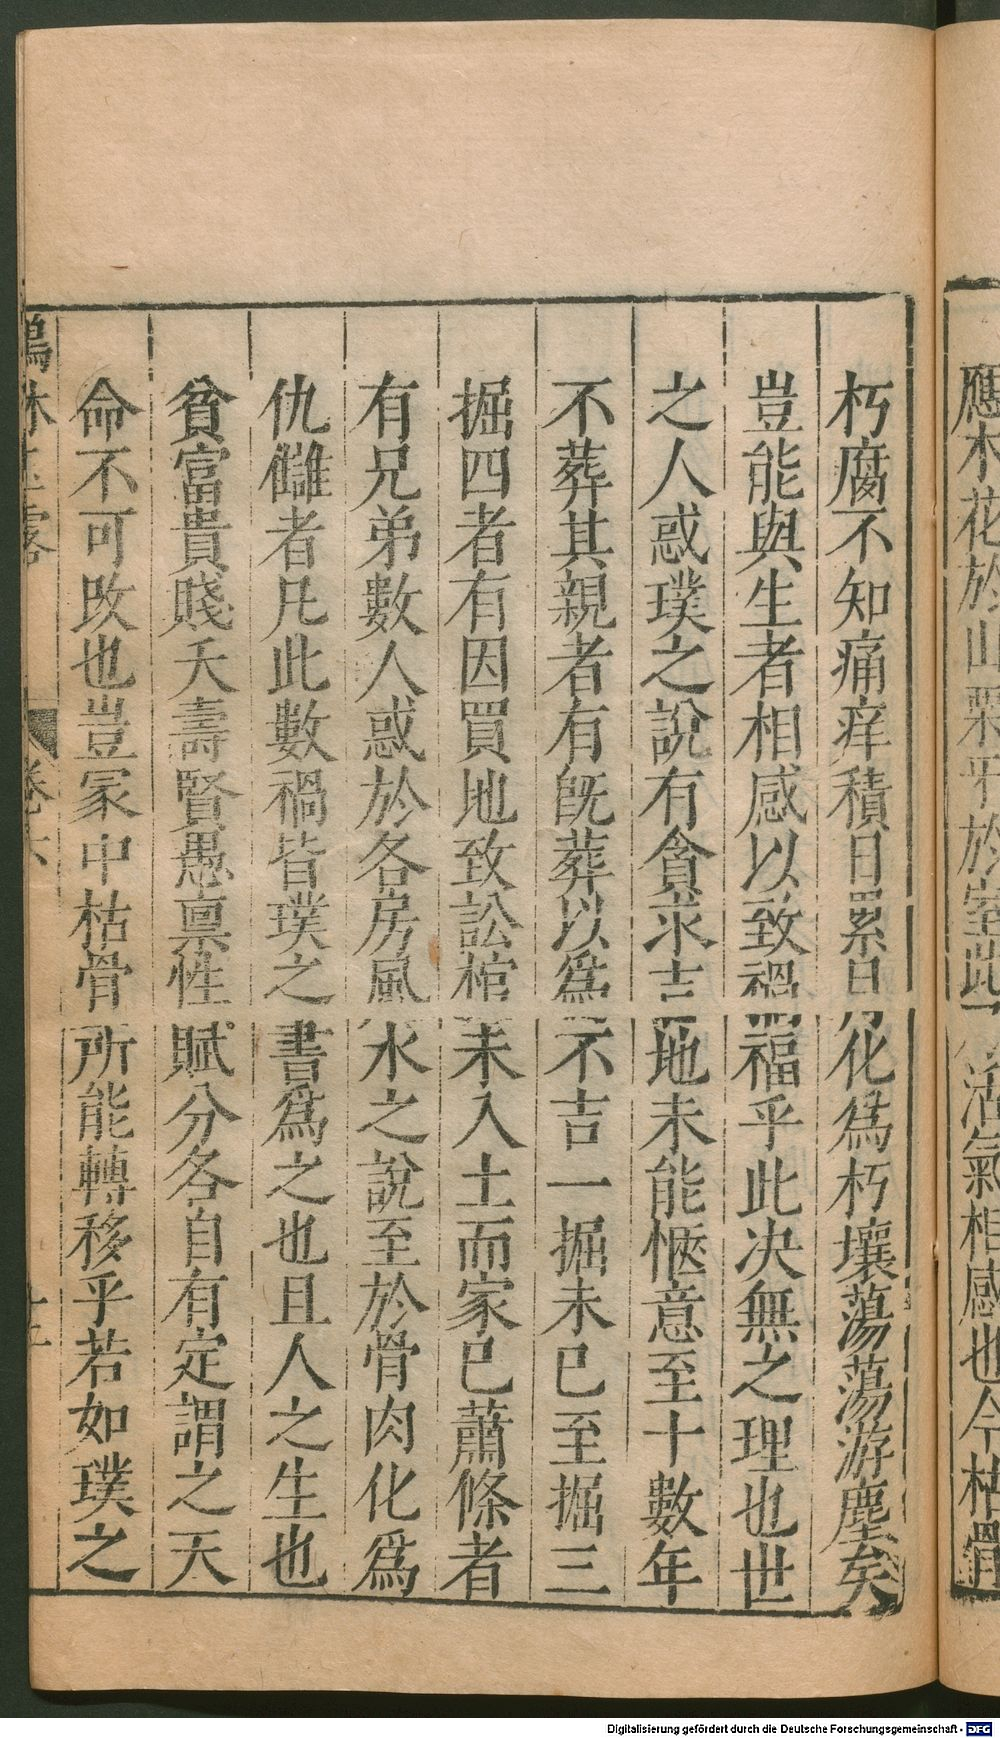 應木花於山栗牙於室此乃活氣相感也今枯骨
朽腐不知痛痒積日累月化爲朽壤蕩蕩游塵矣
豈能與生者相感以致禍福乎此决無之理也世
之人惑璞之說有貪求吉地未能愜意至十數年
不葬其親者有旣葬以爲不吉一掘未已至掘三
掘四者有因買地致訟棺未入土而家已蕭條者
有兄弟數人惑於各房風水之說至於骨肉化爲
仇讎者凡此數禍皆璞之書爲之也且人之生也
貧富貴賤夭壽賢愚禀性賦分各自有定謂之天
命不可改也豈冢中枯骨所能轉移乎若如璞之
鶴林玉露 卷六
Digitalisierung gefördert durch die Deutsche Forschungsgemeinschaft - DFG